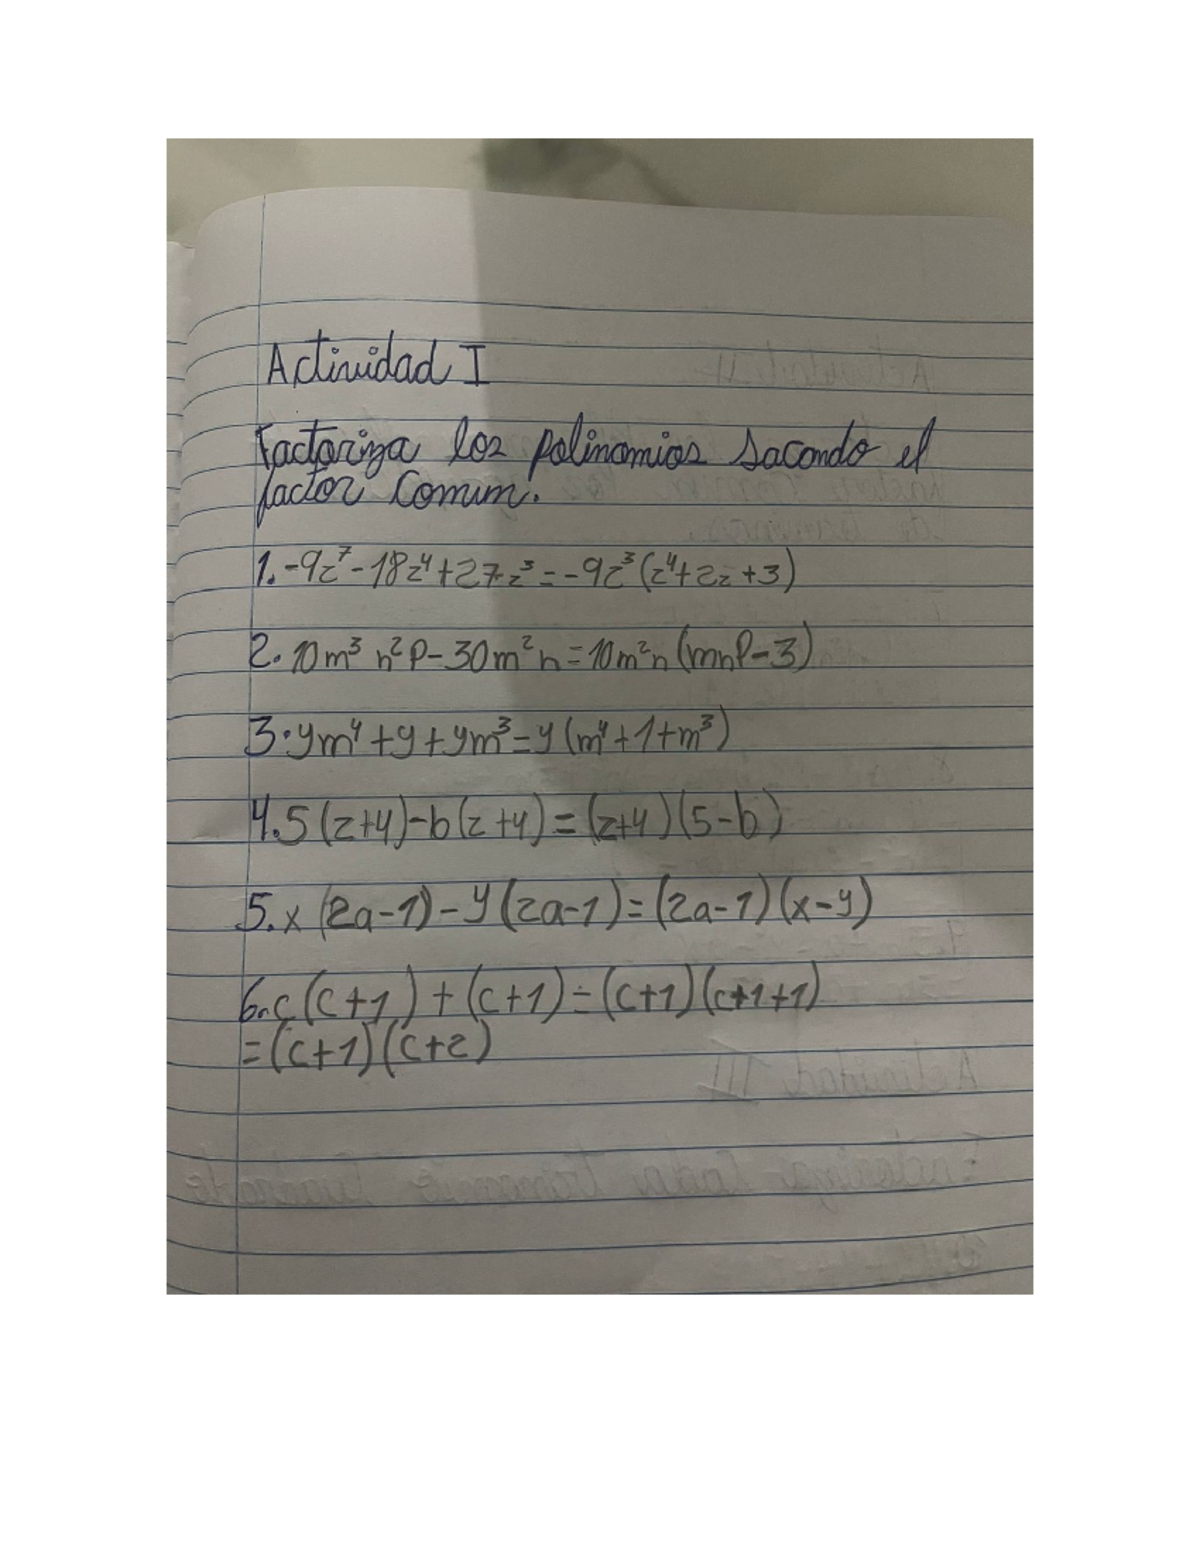 Actividad I
Factoriza los polinomios sacando el
factor Comun.
1. -9z⁷-18z⁴+27z³=-9z³(z⁴+2z+3)
2. 10m³n²p-30m²n=10m²n(mnp-3)
3. ym⁴+y+ym³=y(m⁴+1+m³)
4. 5(z+4)-b(z+4)=(z+4)(5-b)
5. x(2a-1)-y(2a-1)=(2a-1)(x-y)
6. c(c+1)+(c+1)=(c+1)(c+1+1)
=(c+1)(c+2)